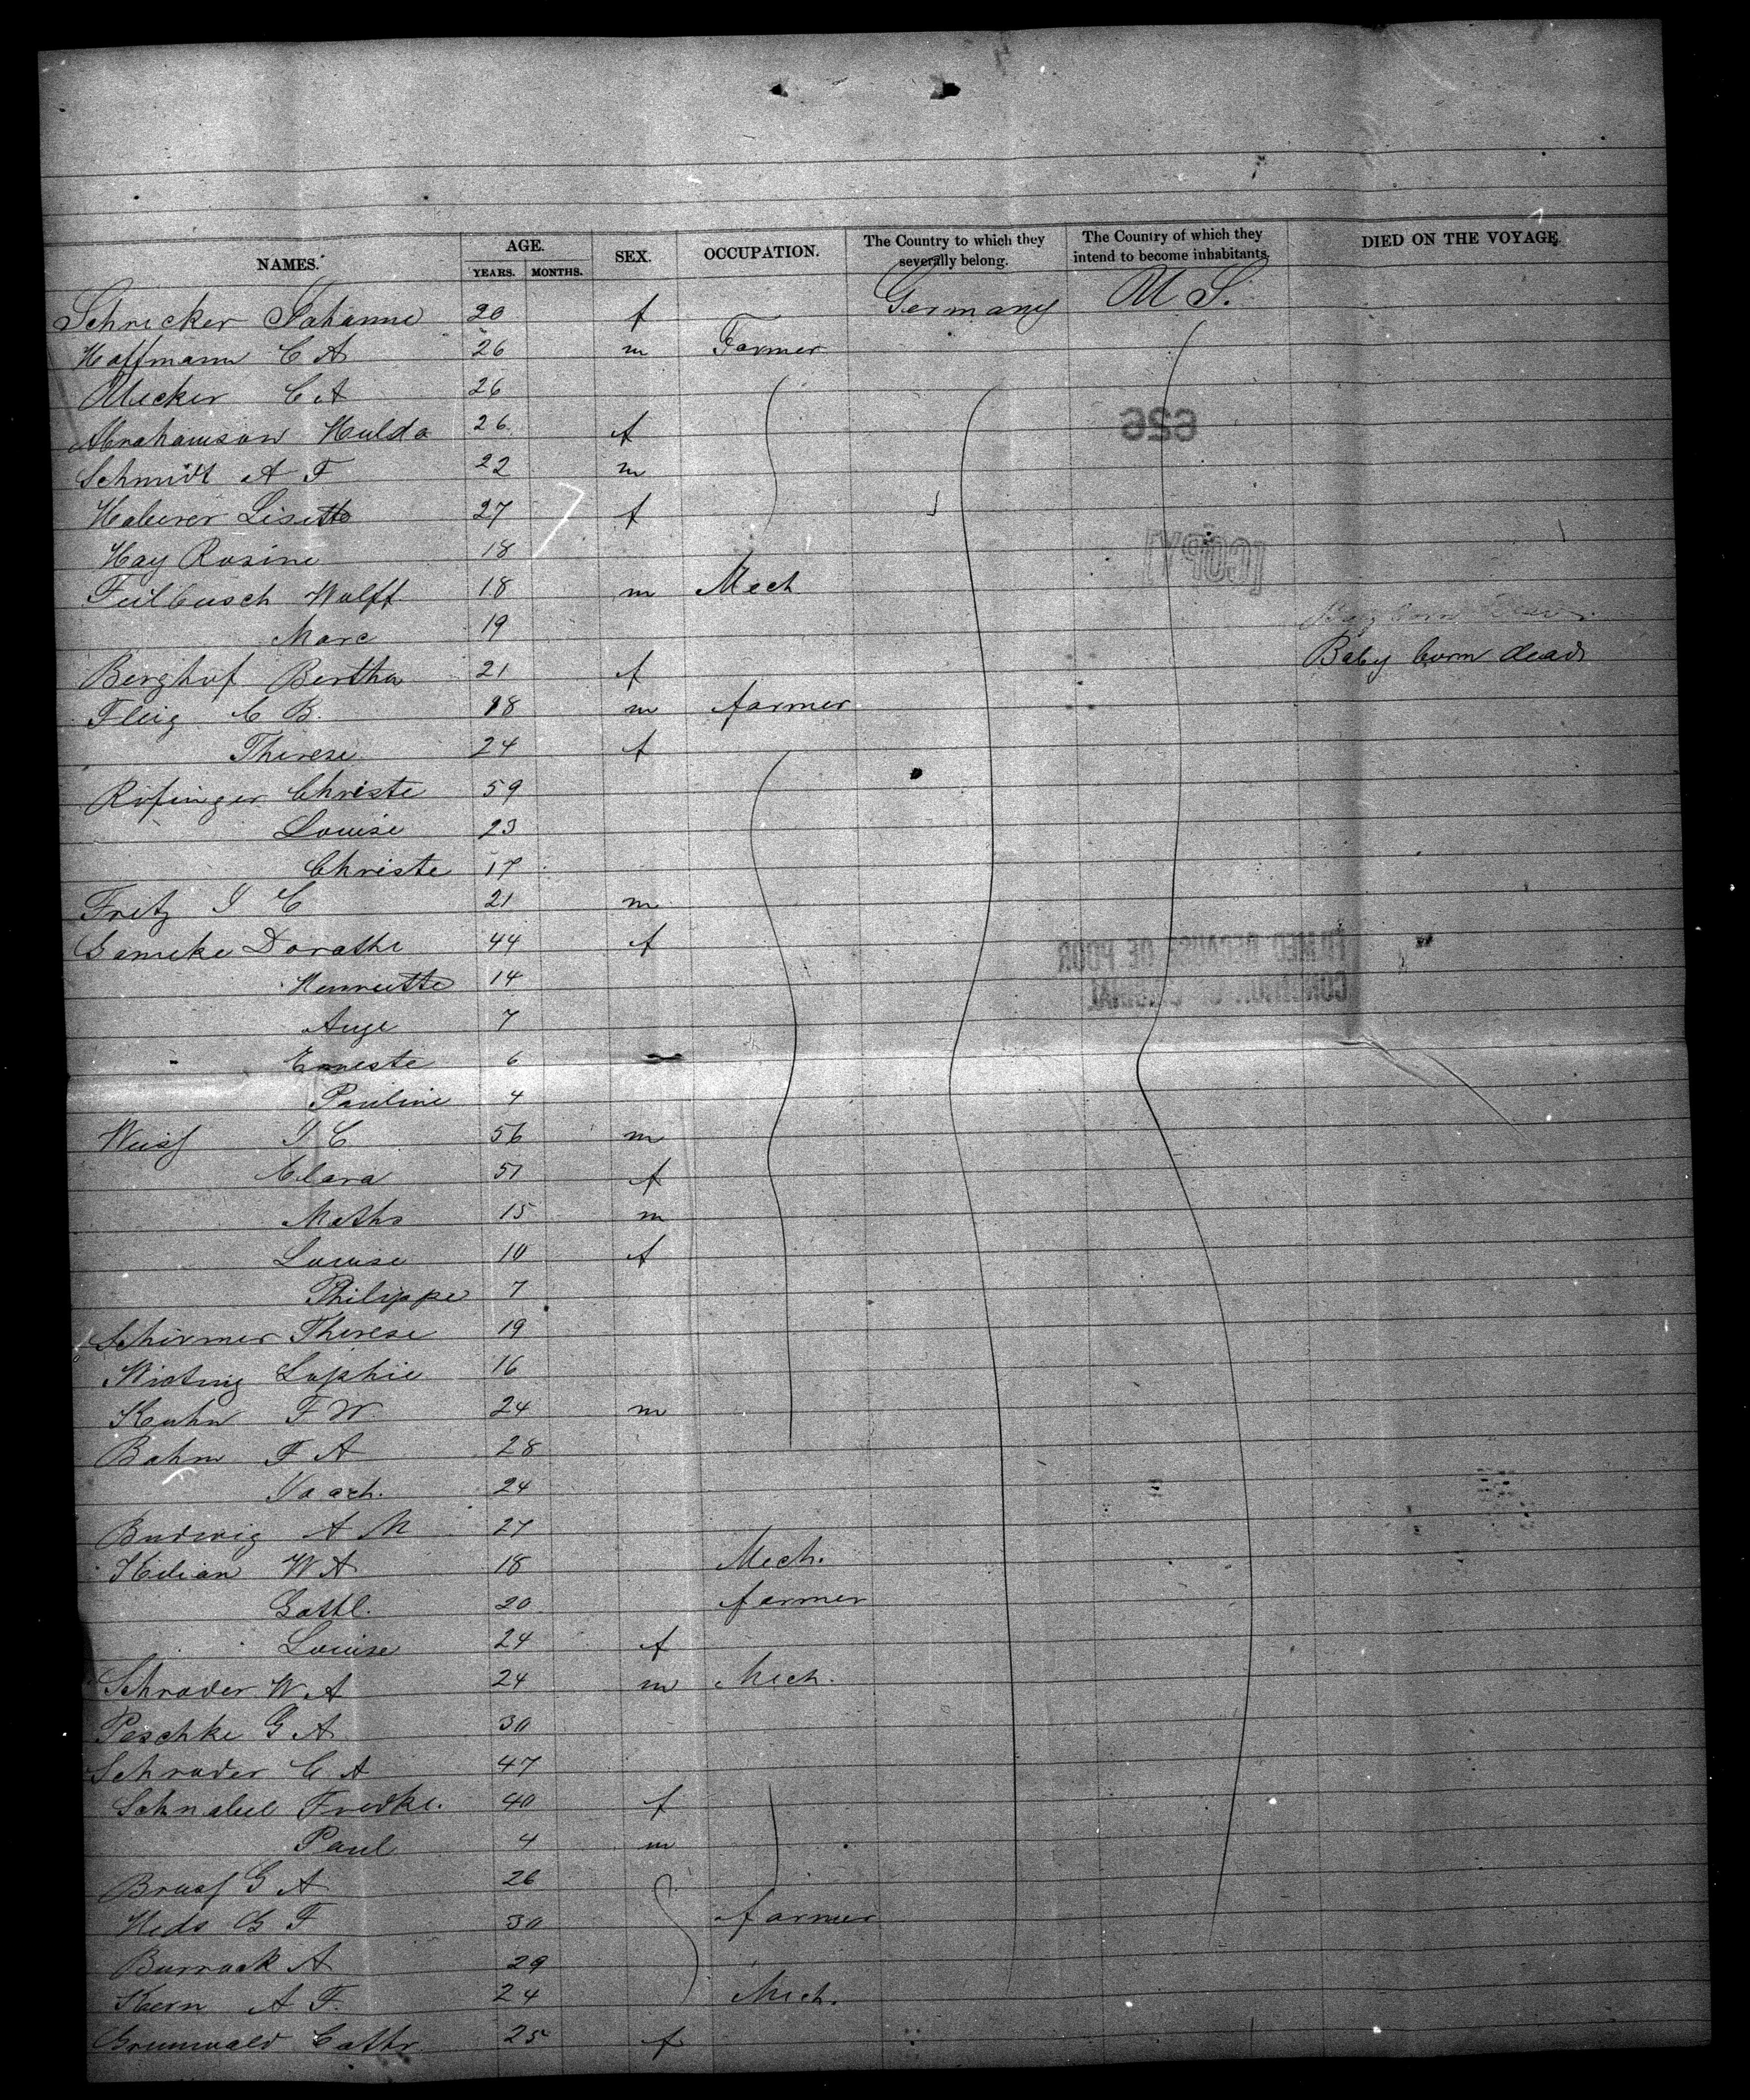 NAMES. AGE. YEARS. MONTHS. SEX. OCCUPATION. The Country to which they severally belong. The Country of which they intend to become inhabitants. DIED ON THE VOYAGE.
Schricker Johanne 20 f Germany U S.
Hoffmann C A 26 m Farmer
Uecker C A 26
626
Abrahamson Hulda 26 f
Schmidt A F 22 m
Haberer Lisette 27 f
Hay Rosine 18
[COPY]
Feilbusch Wolff 18 m Mech
Marc 19
Berghof Bertha 21 f Baby born dead
Fleig C B. 18 m farmer
Therese 24 f
Rifinger Christe 59
Louise 23
Christe 17
Fretz J C 21 m
Gameke Dorathe 44 f
FILMED BECAUSE OF POOR
CONDITION OF ORIGINAL
Henriette 14
Auge 7
Erneste 6
Pauline 4
Weiss J C 56 m
Clara 51 f
Maths 15 m
Louise 10 f
Philippe 7
Schirmer Therese 19
Wisting Sophie 16
Kuhn F W. 24 m
Bahm F A 28
24
Budwig A M 27
Kilian W A 18 Mech.
Gottl. 20 farmer
Louise 24 f
Schrader W A 24 m Mech.
Peschke G A 30
Schrader C A 47
Schnabel Fredke. 40 f
Paul 4 m
Braas G A 26
G F 30 farmer
Burrack A 29
Kern A F. 24 Mech.
Grunwald Cathr 25 f